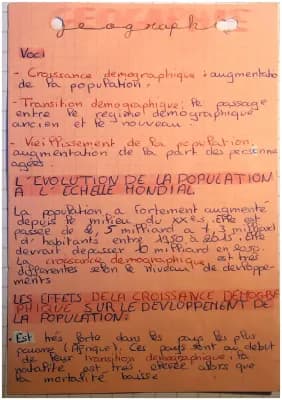 GEOGRAPHIE
geographie
Voc:
- Croissance démographique : augmentatio
de la population.
- Transition démographique; le passage
entre le régime démographique
ancien et le nouveau.
- Vieillissement de la population,
augmentation de la part des personne
agées.
L'EVOLUTION DE LA POPULATION
A L'ECHELLE MONDIAL
La population a fortement augmenté
depuis le milieu du XXes. Elle est
passée de 2,5 milliard a 7,3 milliard
d'habitants entre 1950 à 2015. Elle
devrait dépasser 10 milliard en 2050.
La croissance démographique est très
différentes selon le niveau de dévloppe-
ments
LES EFFETS DE LA CROISSANCE DÉMOGRA
PHIQUE SUR LE DÉVLOPPEMENT DE
LA POPULATION:
• Est très forte dans les pays les plus
pauvre (Afrique). Ces pays sont au début
de leur transition démographique: la
natalité est très élevée alors que
la mortalité baisse